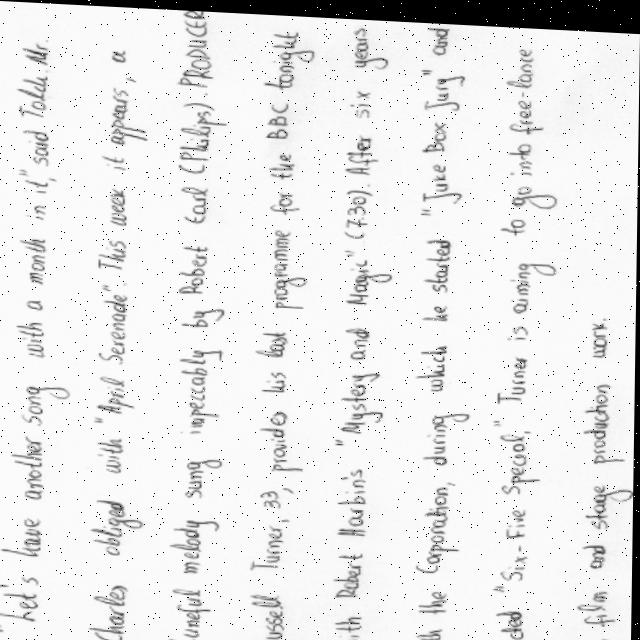 "Let's have another song with a month in it," said Todd. Mr.
Charles obliged with "April Serenade". This week it appears, a
tuneful melody sung impeccably by Robert Earl (Philips) PRODUCER
Russell Turner, 33, provides his last programme for the BBC tonight
with Robert Harbin's "Mystery and Magic" (7.30). After six years
the Corporation, during which he started "Juke Box Jury" and
"Six-Five Special," Turner is aiming to go into free-lance
film and stage production work.